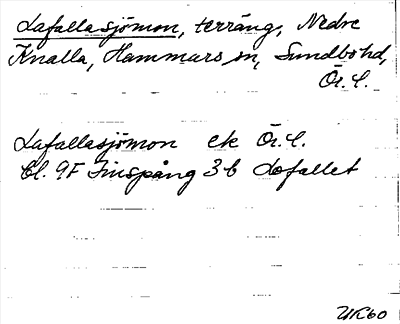 Lafallasjömon, terräng, Nedre
Knalla, Hammars sn, Sundbo hd,
Ör. l.
Lafallasjömon ek Ör. l.
bl. 9F Finspång 3 b Lofallet
UK60